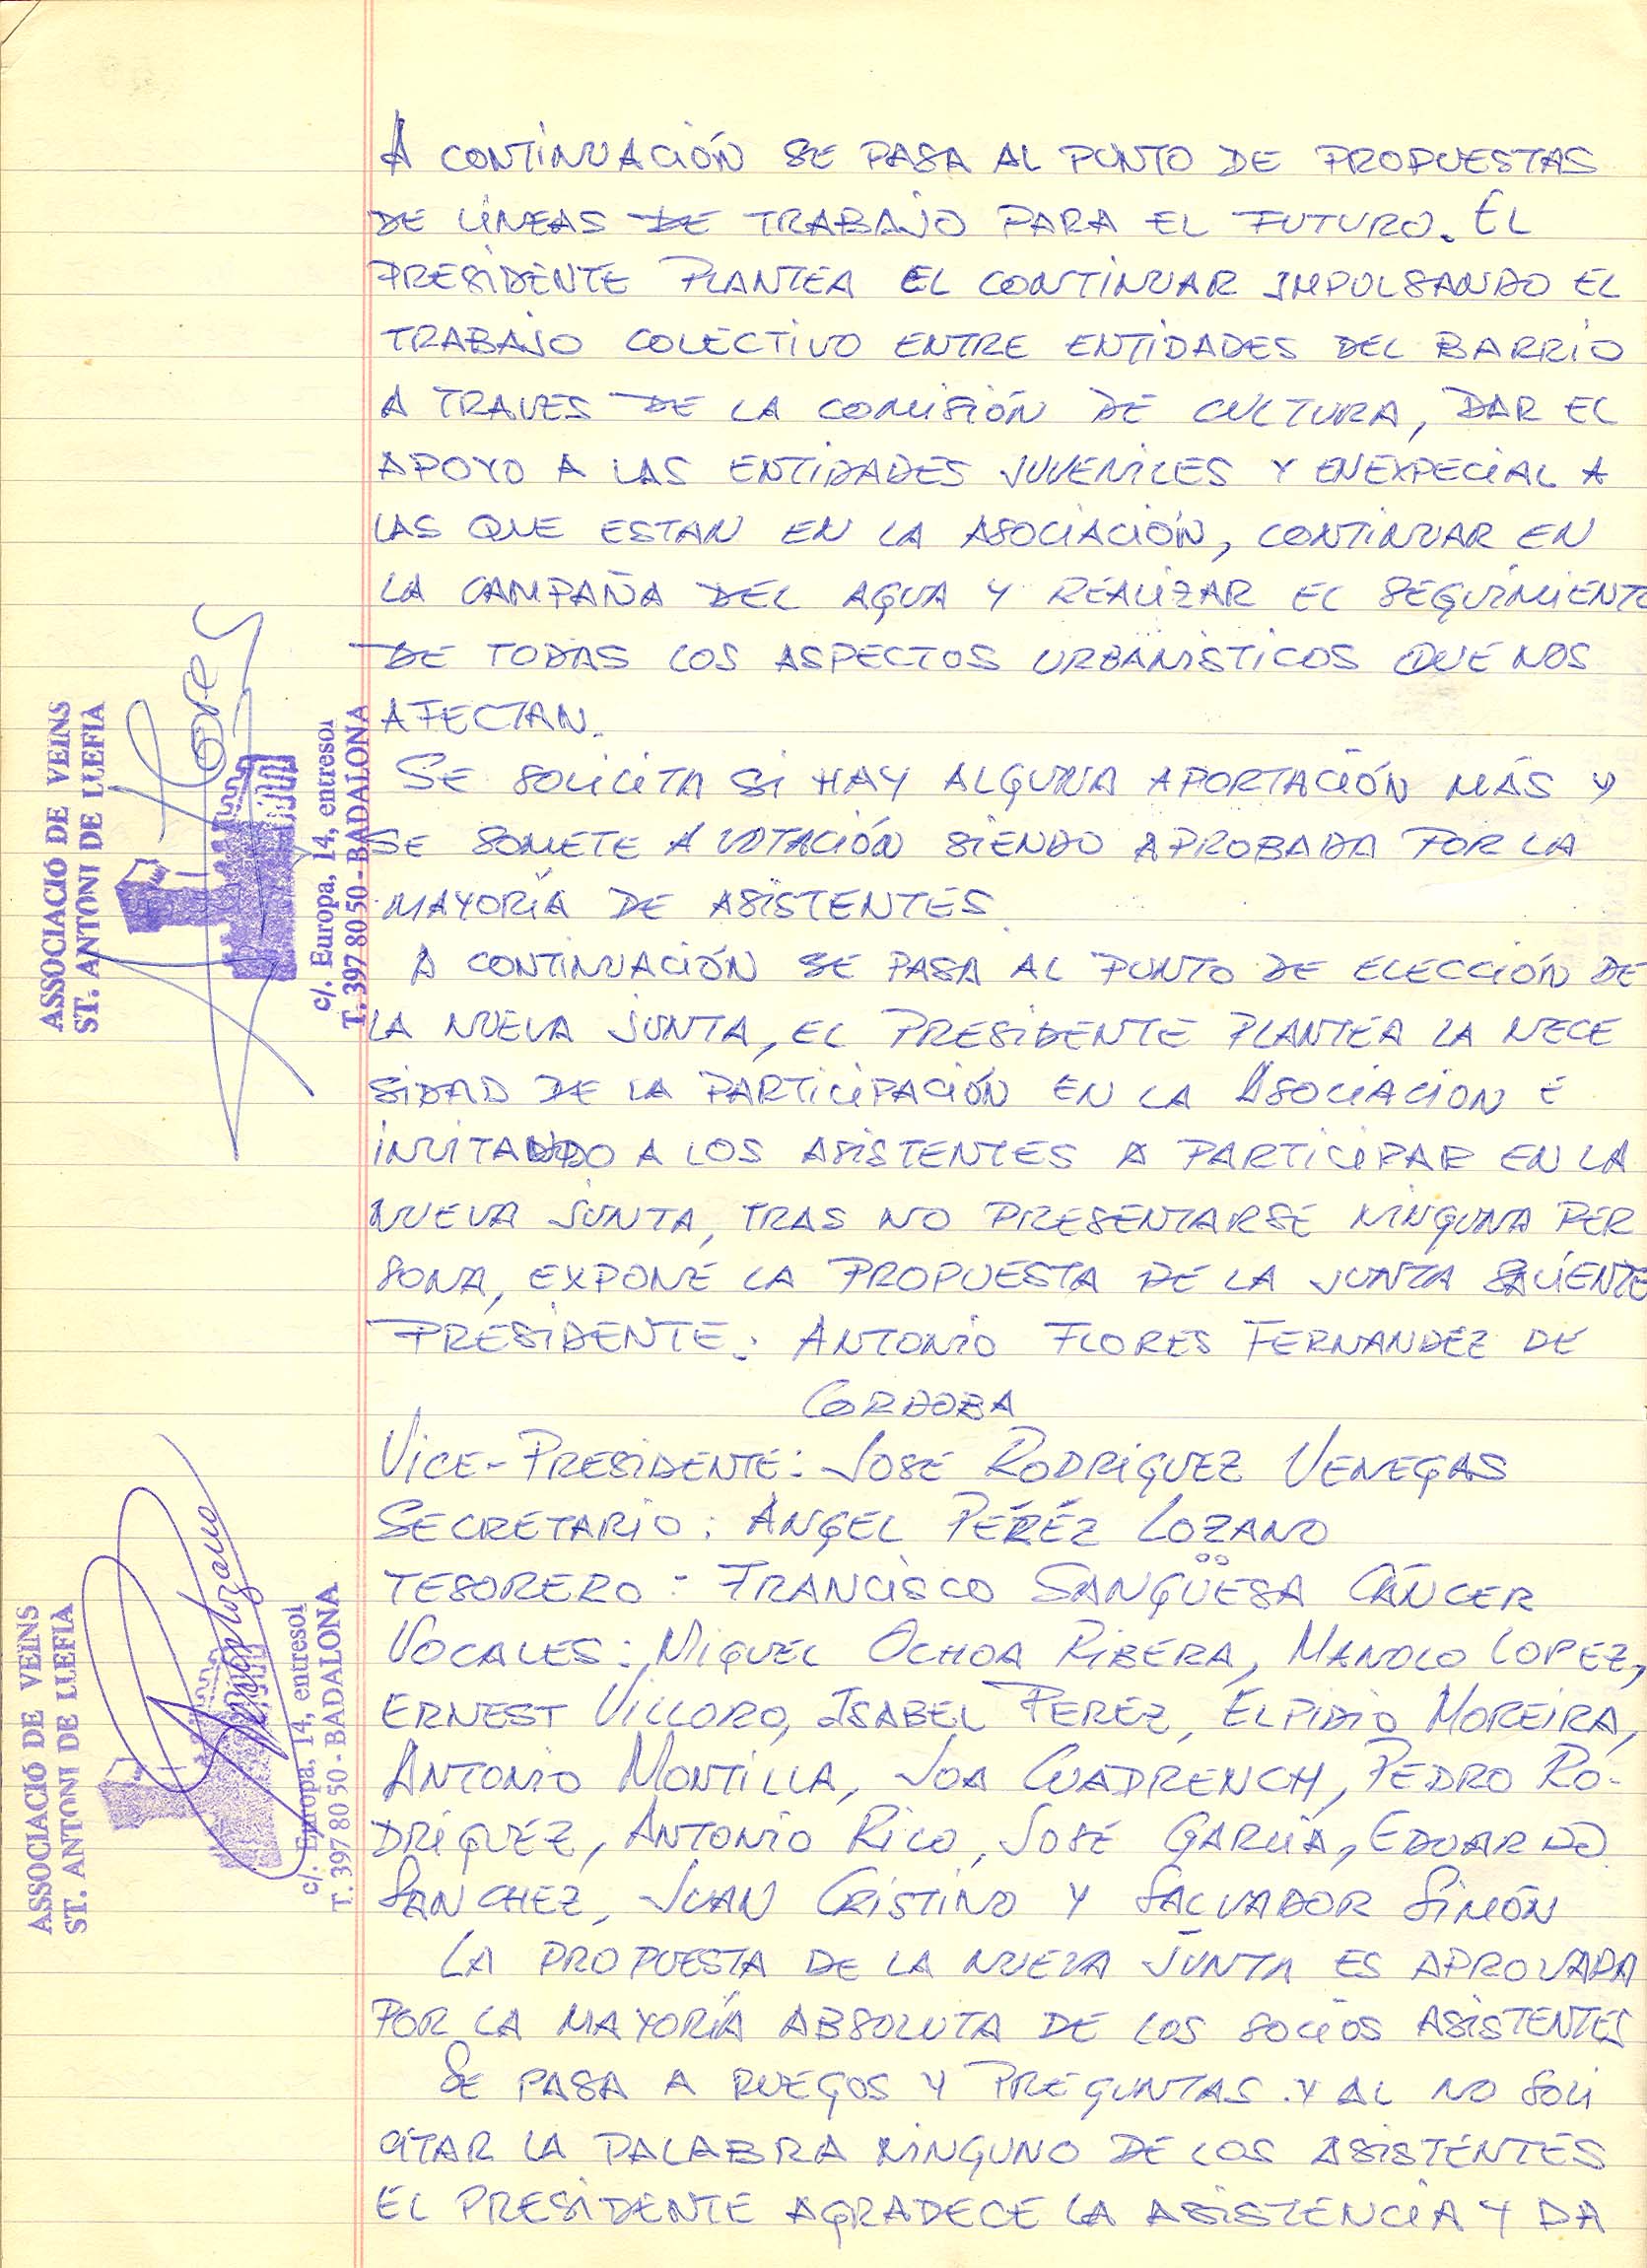 A CONTINUACIÓN SE PASA AL PUNTO DE PROPUESTAS
DE LÍNEAS DE TRABAJO PARA EL FUTURO. EL
PRESIDENTE PLANTEA EL CONTINUAR IMPULSANDO EL
TRABAJO COLECTIVO ENTRE ENTIDADES DEL BARRIO
A TRAVES DE LA COMISIÓN DE CULTURA, DAR EL
APOYO A LAS ENTIDADES JUVENILES Y EN EXPECIAL A
LAS QUE ESTAN EN LA ASOCIACIÓN, CONTINUAR EN
LA CAMPAÑA DEL AGUA Y REALIZAR EL SEGUIMIENTO
DE TODAS LOS ASPECTOS URBANISTICOS QUE NOS
AFECTAN.
SE SOLICITA SI HAY ALGUNA APORTACIÓN MÁS Y
SE SOMETE A VOTACIÓN SIENDO APROBADA POR LA
MAYORÍA DE ASISTENTES
A CONTINUACIÓN SE PASA AL PUNTO DE ELECCIÓN DE
LA NUEVA JUNTA, EL PRESIDENTE PLANTEA LA NECE
SIDAD DE LA PARTICIPACIÓN EN LA ASOCIACION E
INVITANDO A LOS ASISTENTES A PARTICIPAR EN LA
NUEVA JUNTA, TRAS NO PRESENTARSE NINGUNA PER
SONA, EXPONE LA PROPUESTA DE LA JUNTA SALIENTE
PRESIDENTE: ANTONIO FLORES FERNANDEZ DE
CORDOBA
VICE-PRESIDENTE: JOSE RODRIGUEZ VENEGAS
SECRETARIO: ANGEL PÉREZ LOZANO
TESORERO: FRANCISCO SANGÜESA CÁNCER
VOCALES: MIGUEL OCHOA RIBERA, MANOLO LOPEZ,
ERNEST VILLORO, ISABEL PEREZ, ELPIDIO MOREIRA,
ANTONIO MONTILLA, JOA CUADRENCH, PEDRO RO-
DRIGUEZ, ANTONIO RICO, JOSÉ GARCÍA, EDUARDO
SANCHEZ, JUAN CRISTINO Y SALVADOR SIMÓN
LA PROPUESTA DE LA NUEVA JUNTA ES APROVADA
POR LA MAYORÍA ABSOLUTA DE LOS SOCIOS ASISTENTES
SE PASA A RUEGOS Y PREGUNTAS. Y AL NO SOLI
CITAR LA PALABRA NINGUNO DE LOS ASISTENTES
EL PRESIDENTE AGRADECE LA ASISTENCIA Y DA
ASSOCIACIÓ DE VEINS
ST. ANTONI DE LLEFIA
Flores
c/. Europa, 14, entresol
T. 397 80 50 - BADALONA
ASSOCIACIÓ DE VEINS
ST. ANTONI DE LLEFIA
Lozano
c/. Europa, 14, entresol
T. 397 80 50 - BADALONA